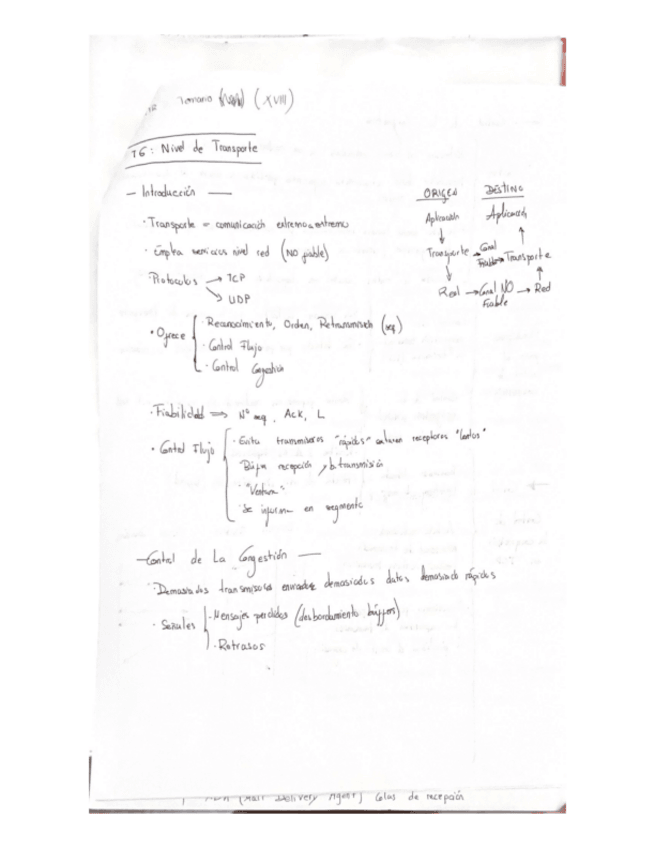 Temario (XVIII)
T6: Nivel de Transporte
— Introducción —
· Transporte = comunicación extremo a extremo
· Emplea servicios nivel red (NO fiable)
· Protocolos → TCP
→ UDP
· Ofrece
· Reconocimiento, Orden, Retransmisión
· Control Flujo
· Control Congestión
ORIGEN DESTINO
Aplicación Aplicación
Transporte → Canal Fiable → Transporte
Red → Canal NO Fiable → Red
· Fiabilidad ⇒ Nº seq, Ack, L
· Control Flujo
· Evita transmisores "rápidos" saturen receptores "lentos"
Búfer recepción, b. transmisión
· "Ventana"
· Se informa en segmento
— Control de La Congestión —
· Demasiados transmisores enviando demasiados datos demasiado rápidos
· Señales
· Mensajes perdidos (desbordamiento búffers)
· Retrasos
(Mail Delivery Agent) Colas de recepción